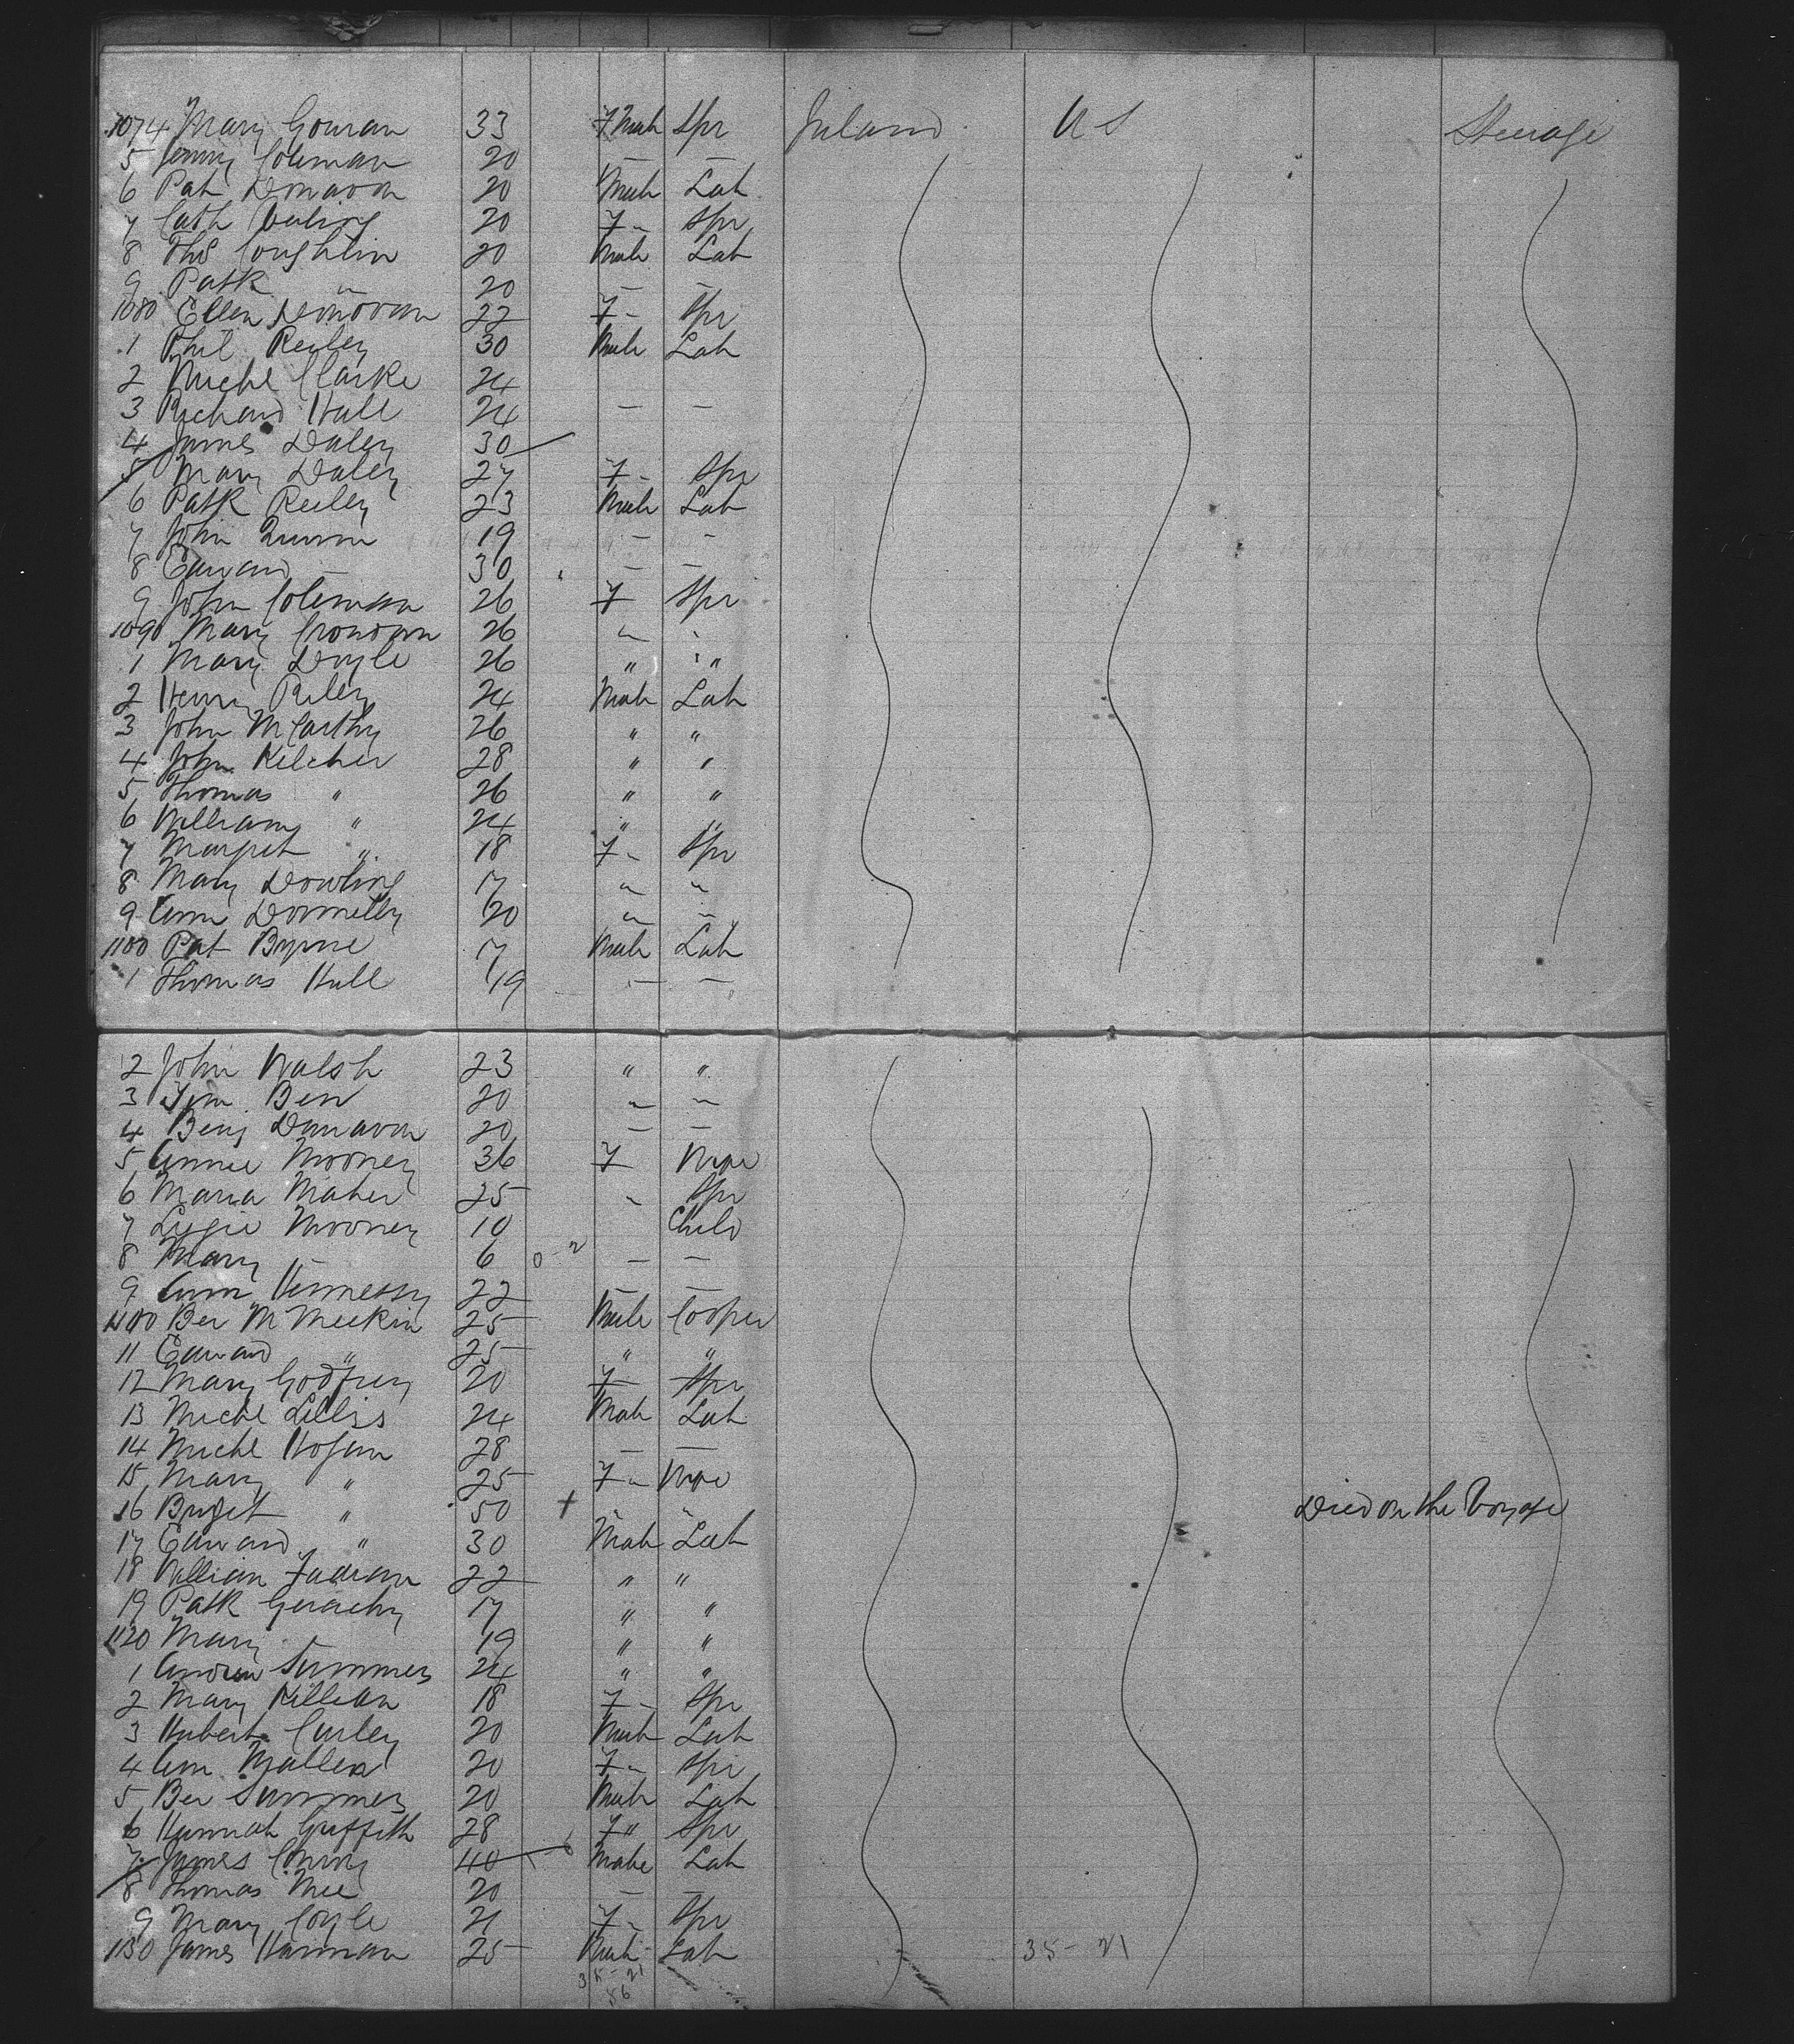 1074 Mary Gouran 33 F Male Spr Ireland US Steerage
5 Jenny Coleman 20 — —
6 Pat Donavon 20 Male Lab
7 Cath 20 F " Spr
8 Ths Coughlin 20 Male Lab
9 Patk " 20 — —
1080 Ellen Donovan 22 F - Spr
1 Phil Reiley 30 Male Lab
2 Michl Clarke 24
3 Richard Hall 24 — —
4 James Daley 30
5 Mary Daley 27 F - Spr
6 Patk Reiley 23 Male Lab
7 John Quinn 19 — -
8 Edward — 30 — —
9 John Coleman 26 F Spr
1090 Mary Cronown 26 " "
1 Mary Doyle 26 " "
2 Henry Riley 24 Male Lab
3 John McCarthy 26 " "
4 John Kelcher 28 " "
5 Thomas " 26 " "
6 William " 24 " "
7 Margret " 18 F - Spr
8 Mary Dowling 17 " "
9 Ann Donnelly 20 " "
1100 Pat Byrne 17 Male Lab
1 Thomas Hall 19 — —
2 John Walsh 23 " "
3 Tim Ben 20 " "
4 Benj Donavon 20 — —
5 Annie Mooney 36 F Wife
6 Maria Maher 25 " Spr
7 Lizzie Mooney 10 Child
8 Mary — 6 0-2 — —
9 Ann Hennessy 22 — —
1100 Ber McMeekin 25 Male Cooper
11 Edward " 25 " "
12 Mary Godfrey 20 F Spr
13 Michl Lillis 24 Male Lab
14 Michl Hogan 28 — —
15 Mary " 25 F " Wife
16 Bridget " 50 + " " Died on the Voyage
17 Edward " 30 Male Lab
18 William Fadian 22 " "
19 Patk Gerachy 17 " "
1120 Mary — 19 " "
1 Andrew Summers 24 " "
2 Mary Killian 18 F - Spr
3 Hubert Curley 20 Male Lab
4 Ann Mallen 20 F " Spr
5 Ber Summers 20 Male Lab
6 Hannah Griffith 28 F " Spr
7 James 40 Male Lab
8 Thomas Mee 20 — —
9 Mary Coyle 21 F " Spr
1130 James Hannan 25 Male Lab 35-21
35-21
56